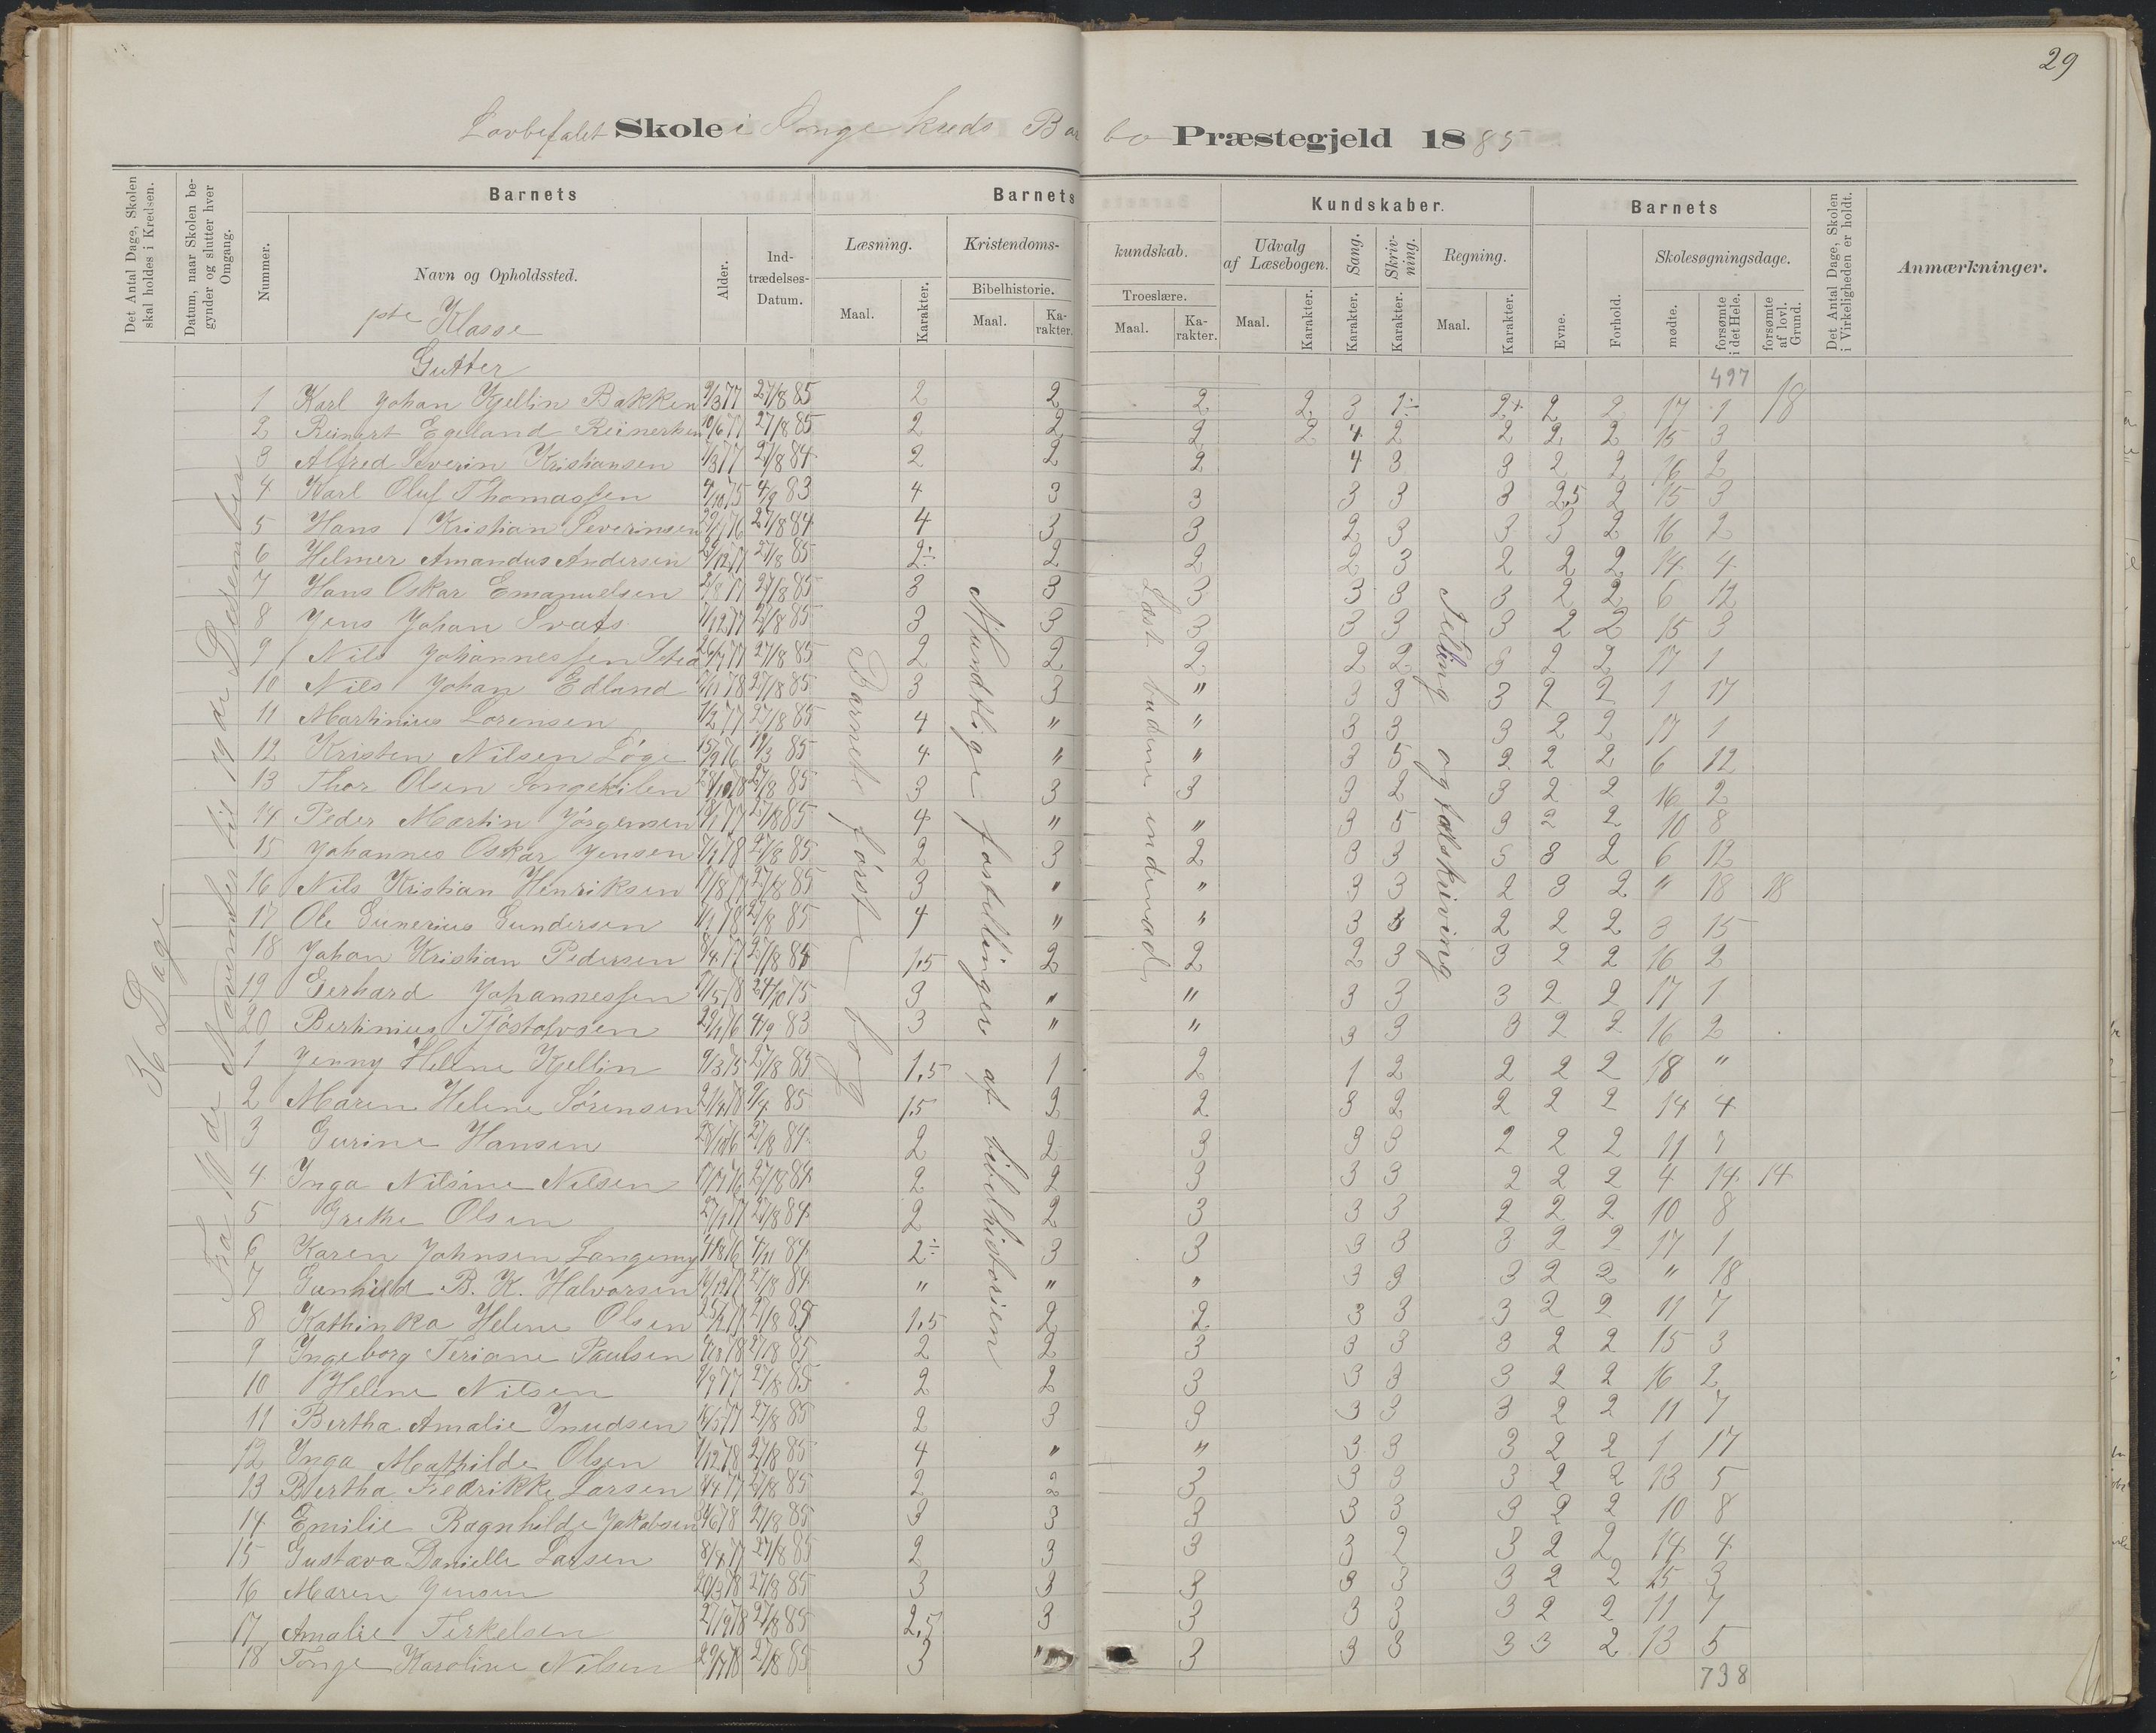 29
Lovbefalet Skole i Songe Kreds Barbo Præstegjeld 1885
Det Antal Dage, Skolen skal holdes i Kredsen.
Datum, naar Skolen begynder og slutter hver Omgang.
Barnets
Nummer.
Navn og Opholdssted.
Alder.
Indtrædelses-Datum.
Barnets
Kundskaber.
Læsning.
Maal.
Karakter.
Kristendomskundskab.
Bibelhistorie.
Maal.
Karakter.
Troeslære.
Maal.
Karakter.
Udvalg af Læsebogen.
Maal.
Karakter.
Sang.
Karakter.
Skrivning.
Karakter.
Regning.
Maal.
Karakter.
Barnets
Evne.
Forhold.
Skolesøgningsdage.
mødte.
forsømte i det Hele.
forsømte af lovl. Grund.
Det Antal Dage, Skolen i Virkeligheden er holdt.
Anmærkninger.
36 Dage
Fra 10de November til 19de December
Barnets første bog
Mundtlige fortællinger af bibelhistorien
Læst budene indenad
Telling og talskriving
Klasse
Gutter
497
1 Karl Johan Kjellin Bakken 9/3 77 27/8 85 2 2 2 2 3 1÷ 2+ 2 2 17 1 18
2 Reinert Egeland Reinertsen 10/6 77 27/8 85 2 2 2 2 4 2 2 2 2 15 3
3 Alfred Severin Kristiansen 27/8 84 2 2 2 4 3 3 2 2 16 2
4 Karl Oluf Thomassen 4/9 83 4 3 3 3 3 3 2,5 2 15 3
5 Hans Kristian Severinsen 27/8 84 4 3 3 2 3 3 3 2 16 2
6 Helmer Amandus Andersen 27/8 85 2÷ 2 2 2 3 2 2 2 14 4
7 Hans Oskar Emanuelsen 27/8 85 3 3 3 3 3 3 2 2 6 12
8 Jens Johan 27/8 85 3 3 3 3 3 3 2 2 15 3
9 Nils Johannessen 27/8 85 2 2 2 2 2 3 2 2 17 1
10 Nils Johan Edland 27/8 85 3 3 " 3 3 3 2 2 1 17
11 Martinius Lorensen 27/8 85 4 " " 3 3 3 2 2 17 1
12 Kristen Nilsen Løge 15/9 76 19/3 85 4 " " 3 5 2 2 2 6 12
13 Thor Olsen Songekilen 27/8 85 3 3 3 3 2 3 2 2 16 2
14 Peder Martin Jörgensen 27/8 85 4 " " 3 5 3 2 2 10 8
15 Johannes Oskar Jensen 27/8 85 2 3 2 3 3 3 3 2 6 12
16 Nils Kristian Henriksen 27/8 85 3 " " 3 3 2 3 2 " 18 18
17 Ole Gunerius Gundersen 27/8 85 4 " " 3 3 2 2 2 3 15
18 Johan Kristian Pedersen 27/8 84 1,5 2 2 2 3 3 2 2 16 2
19 Gerhard Johannessen 3 " " 3 3 3 2 2 17 1
20 Bertinius Tjöstolvsen 4/9 83 3 " " 3 3 3 2 2 16 2
1 Jenny Helene Kjellin 9/3 75 27/8 85 1,5 1 2 1 2 2 2 2 18 "
2 Maren Helene Sörensen 85 1,5 2 2 3 2 2 2 2 14 4
3 Gurine Hansen 27/8 84 2 2 3 3 3 2 2 2 11 7
4 Inga Nilsine Nilsen 27/8 84 2 2 3 3 3 2 2 2 4 14 14
5 Grethe Olsen 27/8 84 2 2 3 3 3 2 2 2 10 8
6 Karen Johnsen Langemyr 4/11 84 2÷ 3 3 3 3 3 2 2 17 1
7 Gunhild B. K. Halvorsen 27/8 84 " " " 3 3 3 2 2 " 18
8 Kathinka Helene Olsen 27/8 84 1,5 2 2 3 3 3 2 2 11 7
9 Ingeborg Teriane Paulsen 27/8 85 2 2 3 3 3 3 2 2 15 3
10 Helene Nilsen 27/8 85 2 2 3 3 3 3 2 2 16 2
11 Bertha Amalie Knudsen 27/8 85 2 3 3 3 3 3 2 2 11 7
12 Inga Mathilde Olsen 27/8 85 4 " " 3 3 3 2 2 1 17
13 Bertha Fredrikke Larsen 27/8 85 2 2 3 3 3 3 2 2 13 5
14 Emilie Ragnhilde Jakobsen 27/8 85 3 3 3 3 3 3 2 2 10 8
15 Gustava Danielle Larsen 8/4 77 27/8 85 2 3 3 3 2 3 2 2 14 4
16 Maren Jensen 20/3 78 27/8 85 3 3 3 3 3 3 2 2 15 3
17 Amalie Terkelsen 27/8 85 2,5 3 3 3 3 3 2 2 11 7
18 Tonge Karoline Nilsen 27/8 85 3 " 3 3 3 3 3 2 13 5
738